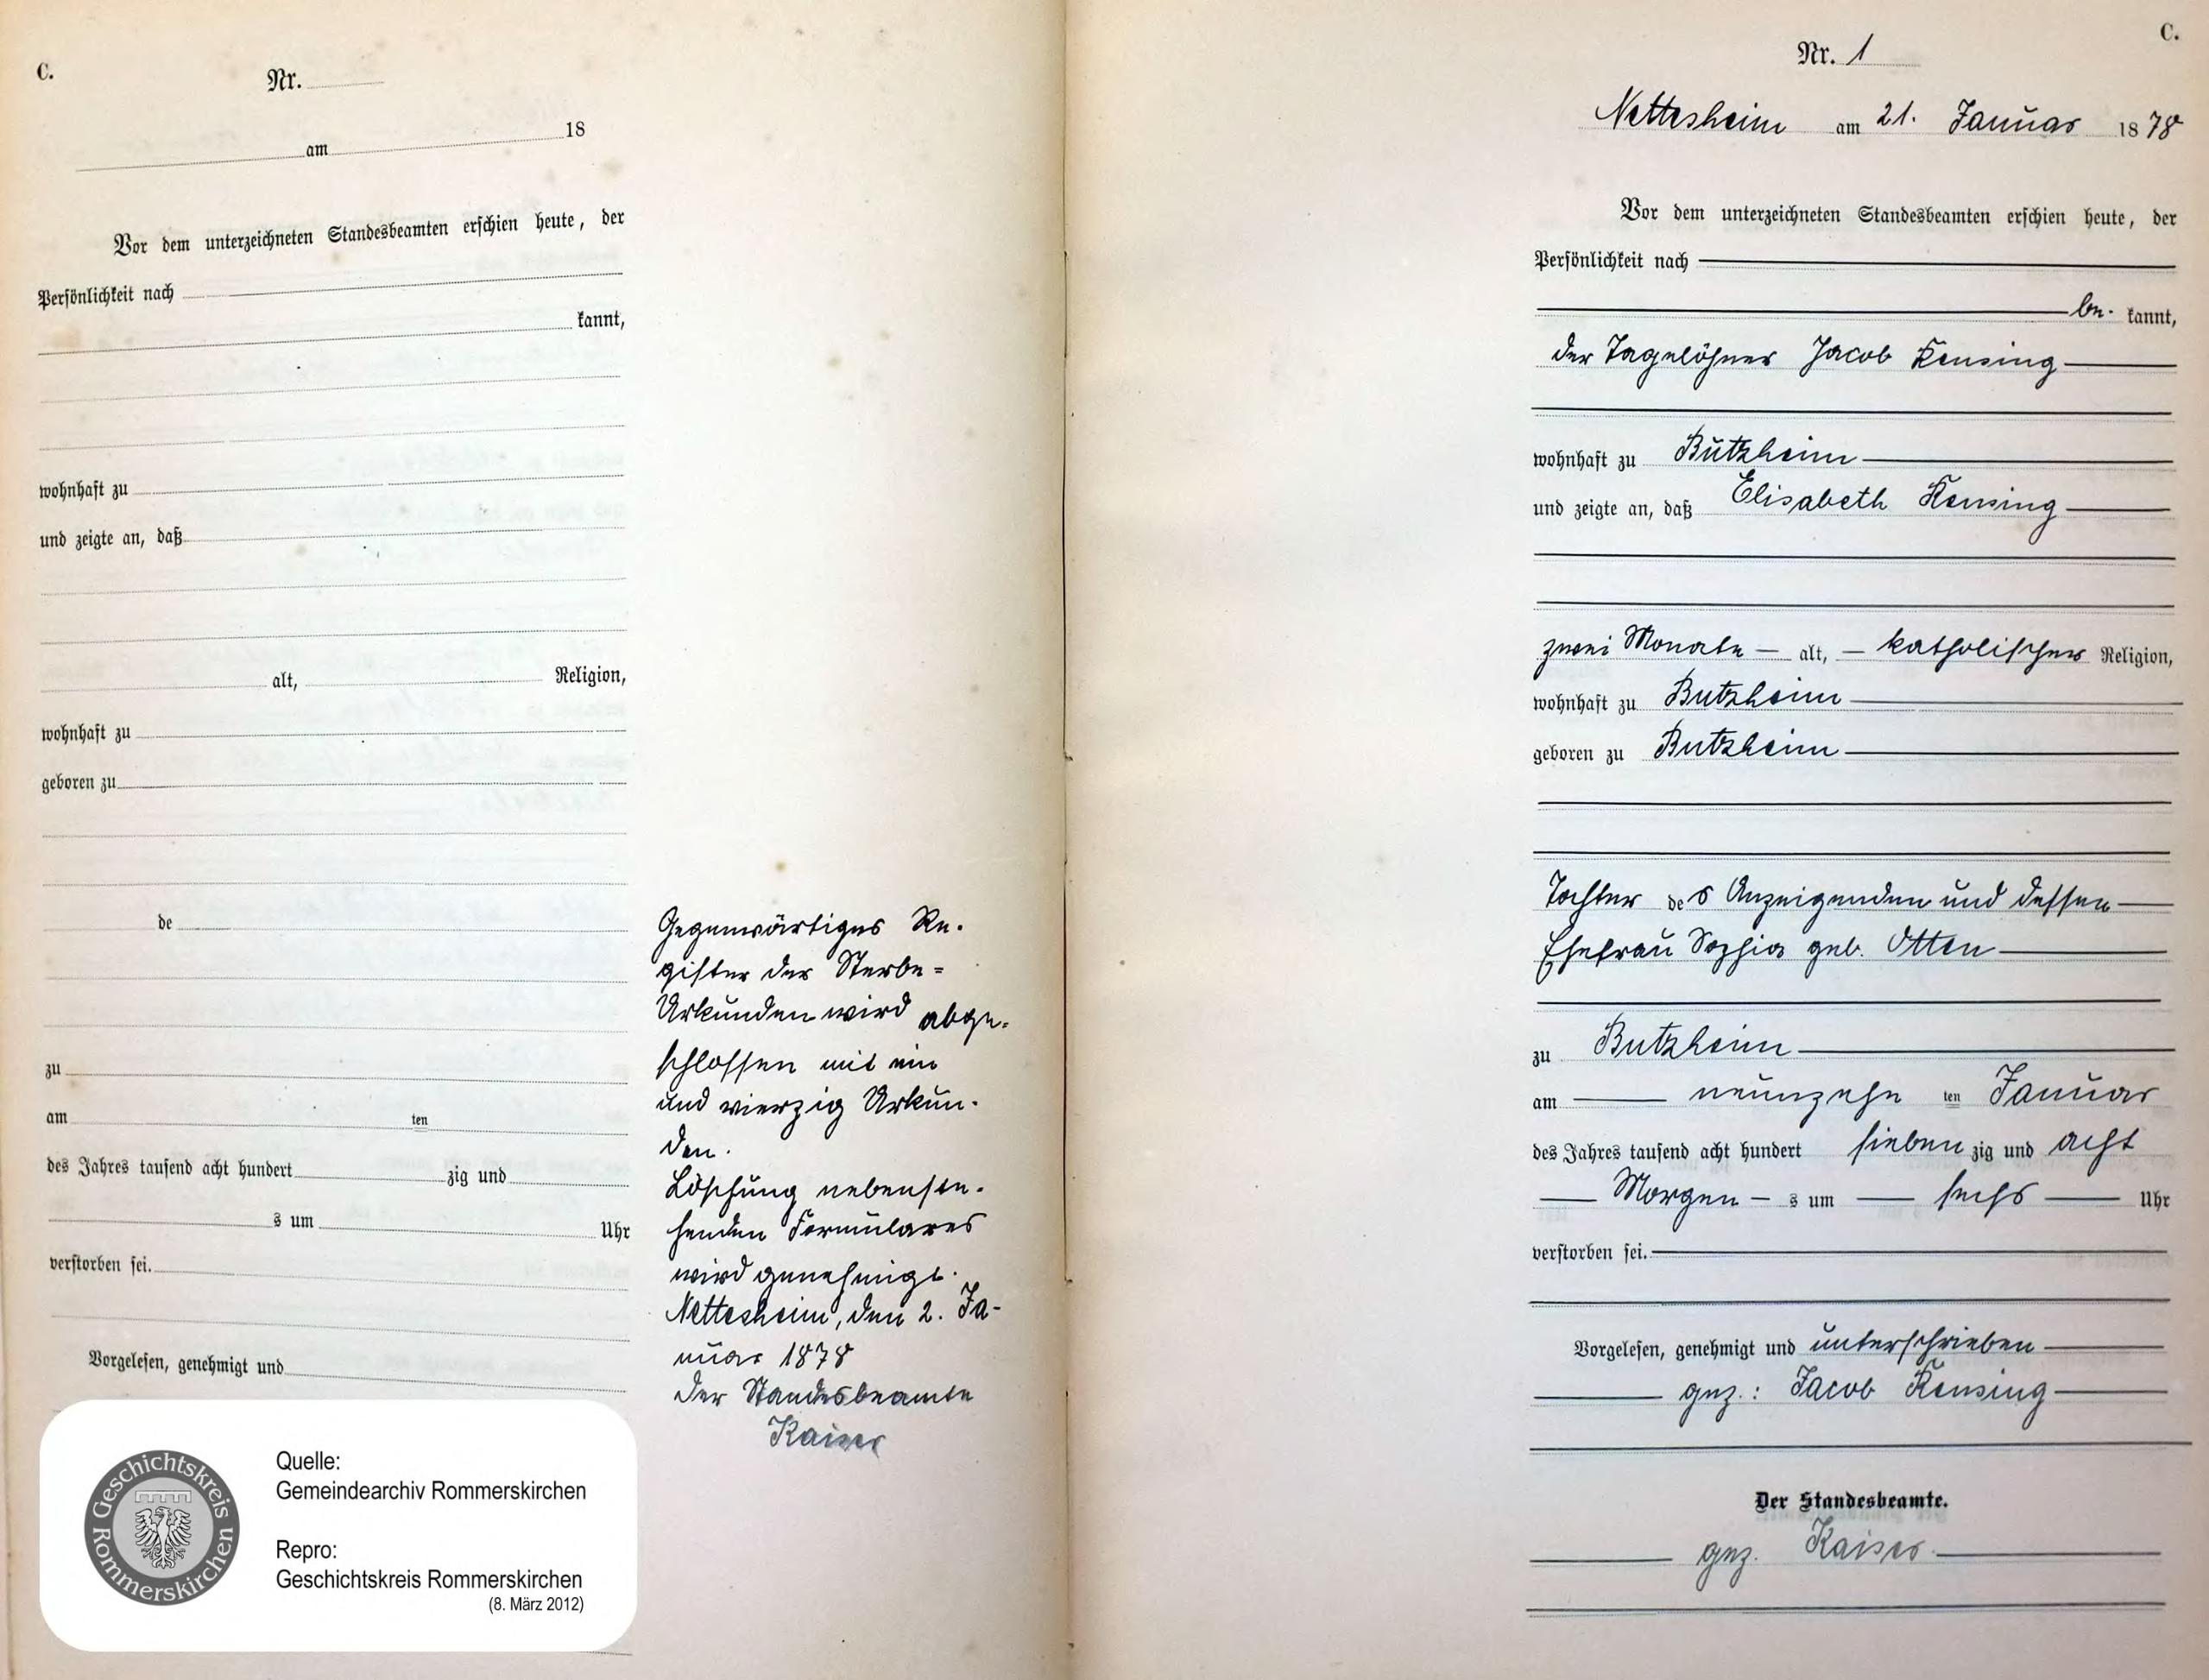 C.
Nr.
am 18
Vor dem unterzeichneten Standesbeamten erschien heute, der
Persönlichkeit nach
kannt,
wohnhaft zu
und zeigte an, daß
alt, Religion,
wohnhaft zu
geboren zu
de
zu
am ten
des Jahres tausend acht hundert zig und
s um Uhr
verstorben sei.
Vorgelesen, genehmigt und
Gegenwärtiges Re-
gister der Sterbe=
Urkunden wird abge-
schlossen mit ein
und vierzig Urkun-
den.
Löschung nebenste-
henden Formulares
wird genehmigt.
Nettesheim, den 2. Ja-
nuar 1878
Der Standesbeamte
Kaiser
Geschichtskreis Rommerskirchen
Quelle:
Gemeindearchiv Rommerskirchen
Repro:
Geschichtskreis Rommerskirchen
(8. März 2012)
C.
Nr. 1
Nettesheim am 21. Januar 1878
Vor dem unterzeichneten Standesbeamten erschien heute, der
Persönlichkeit nach
be- kannt,
der Tagelöhner Jacob Kensing
wohnhaft zu Butzheim
und zeigte an, daß Elisabeth Kensing
zwei Monate alt, katholischer Religion,
wohnhaft zu Butzheim
geboren zu Butzheim
Tochter des Anzeigenden und dessen
Ehefrau Sophia geb. Otten
zu Butzheim
am neunzehn ten Januar
des Jahres tausend acht hundert siebenzig und acht
Morgens um sechs Uhr
verstorben sei.
Vorgelesen, genehmigt und unterschrieben
gez.: Jacob Kensing
Der Standesbeamte.
gez. Kaiser